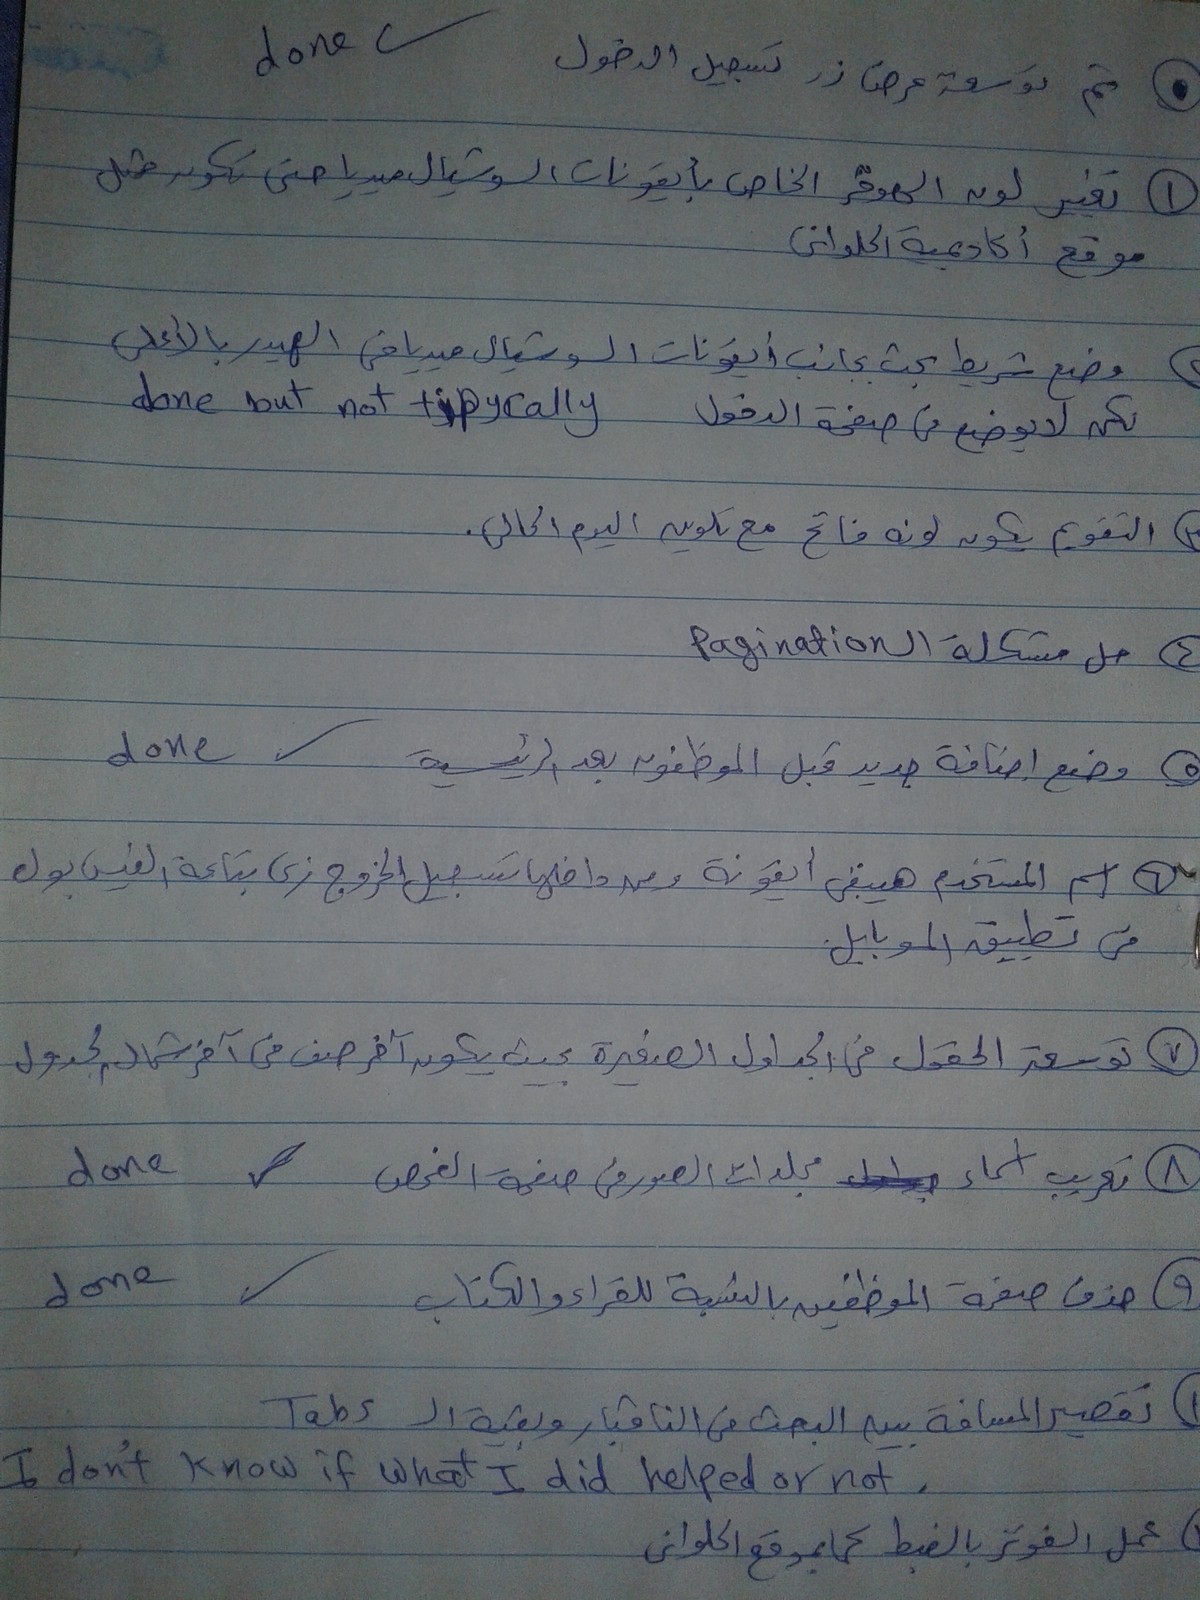 تم توسعة عرض زر تسجيل الدخول done
١ تغيير لون الهوفر الخاص بأيقونات السوشيال ميديا حتى تكون مثل
موقع أكاديمية الحلوانى
٢ وضع شريط بحث بجانب أيقونات السوشيال ميديا فى الهيدر بالأعلى
لكن لا يوضع فى صفحة الدخول done but not typycally
٣ التقويم يكون لونه فاتح مع تلوين اليوم الحالى.
٤ حل مشكلة الـ Pagination
٥ وضع إضافة جديد قبل الموظفون بعد الرئيسية ✓ done
٦ اسم المستخدم هيبقى أيقونة ومن داخلها تسجيل الخروج زى بتاعة الفيس بوك
فى تطبيق الموبايل.
٧ توسعة الحقول فى الجداول الصغيرة بحيث يكون آخر صف فى آخر شمال الجدول
٨ تعريب أسماء مجلدات الصور فى صفحة الفحص ✓ done
٩ حذف صفحة الموظفين بالنسبة للقراء والكتاب ✓ done
تقصير المسافة بين البحث فى النافبار وبقية الـ Tabs
I don't know if what I did helped or not.
عمل الفوتر بالضبط كما بموقع الحلوانى